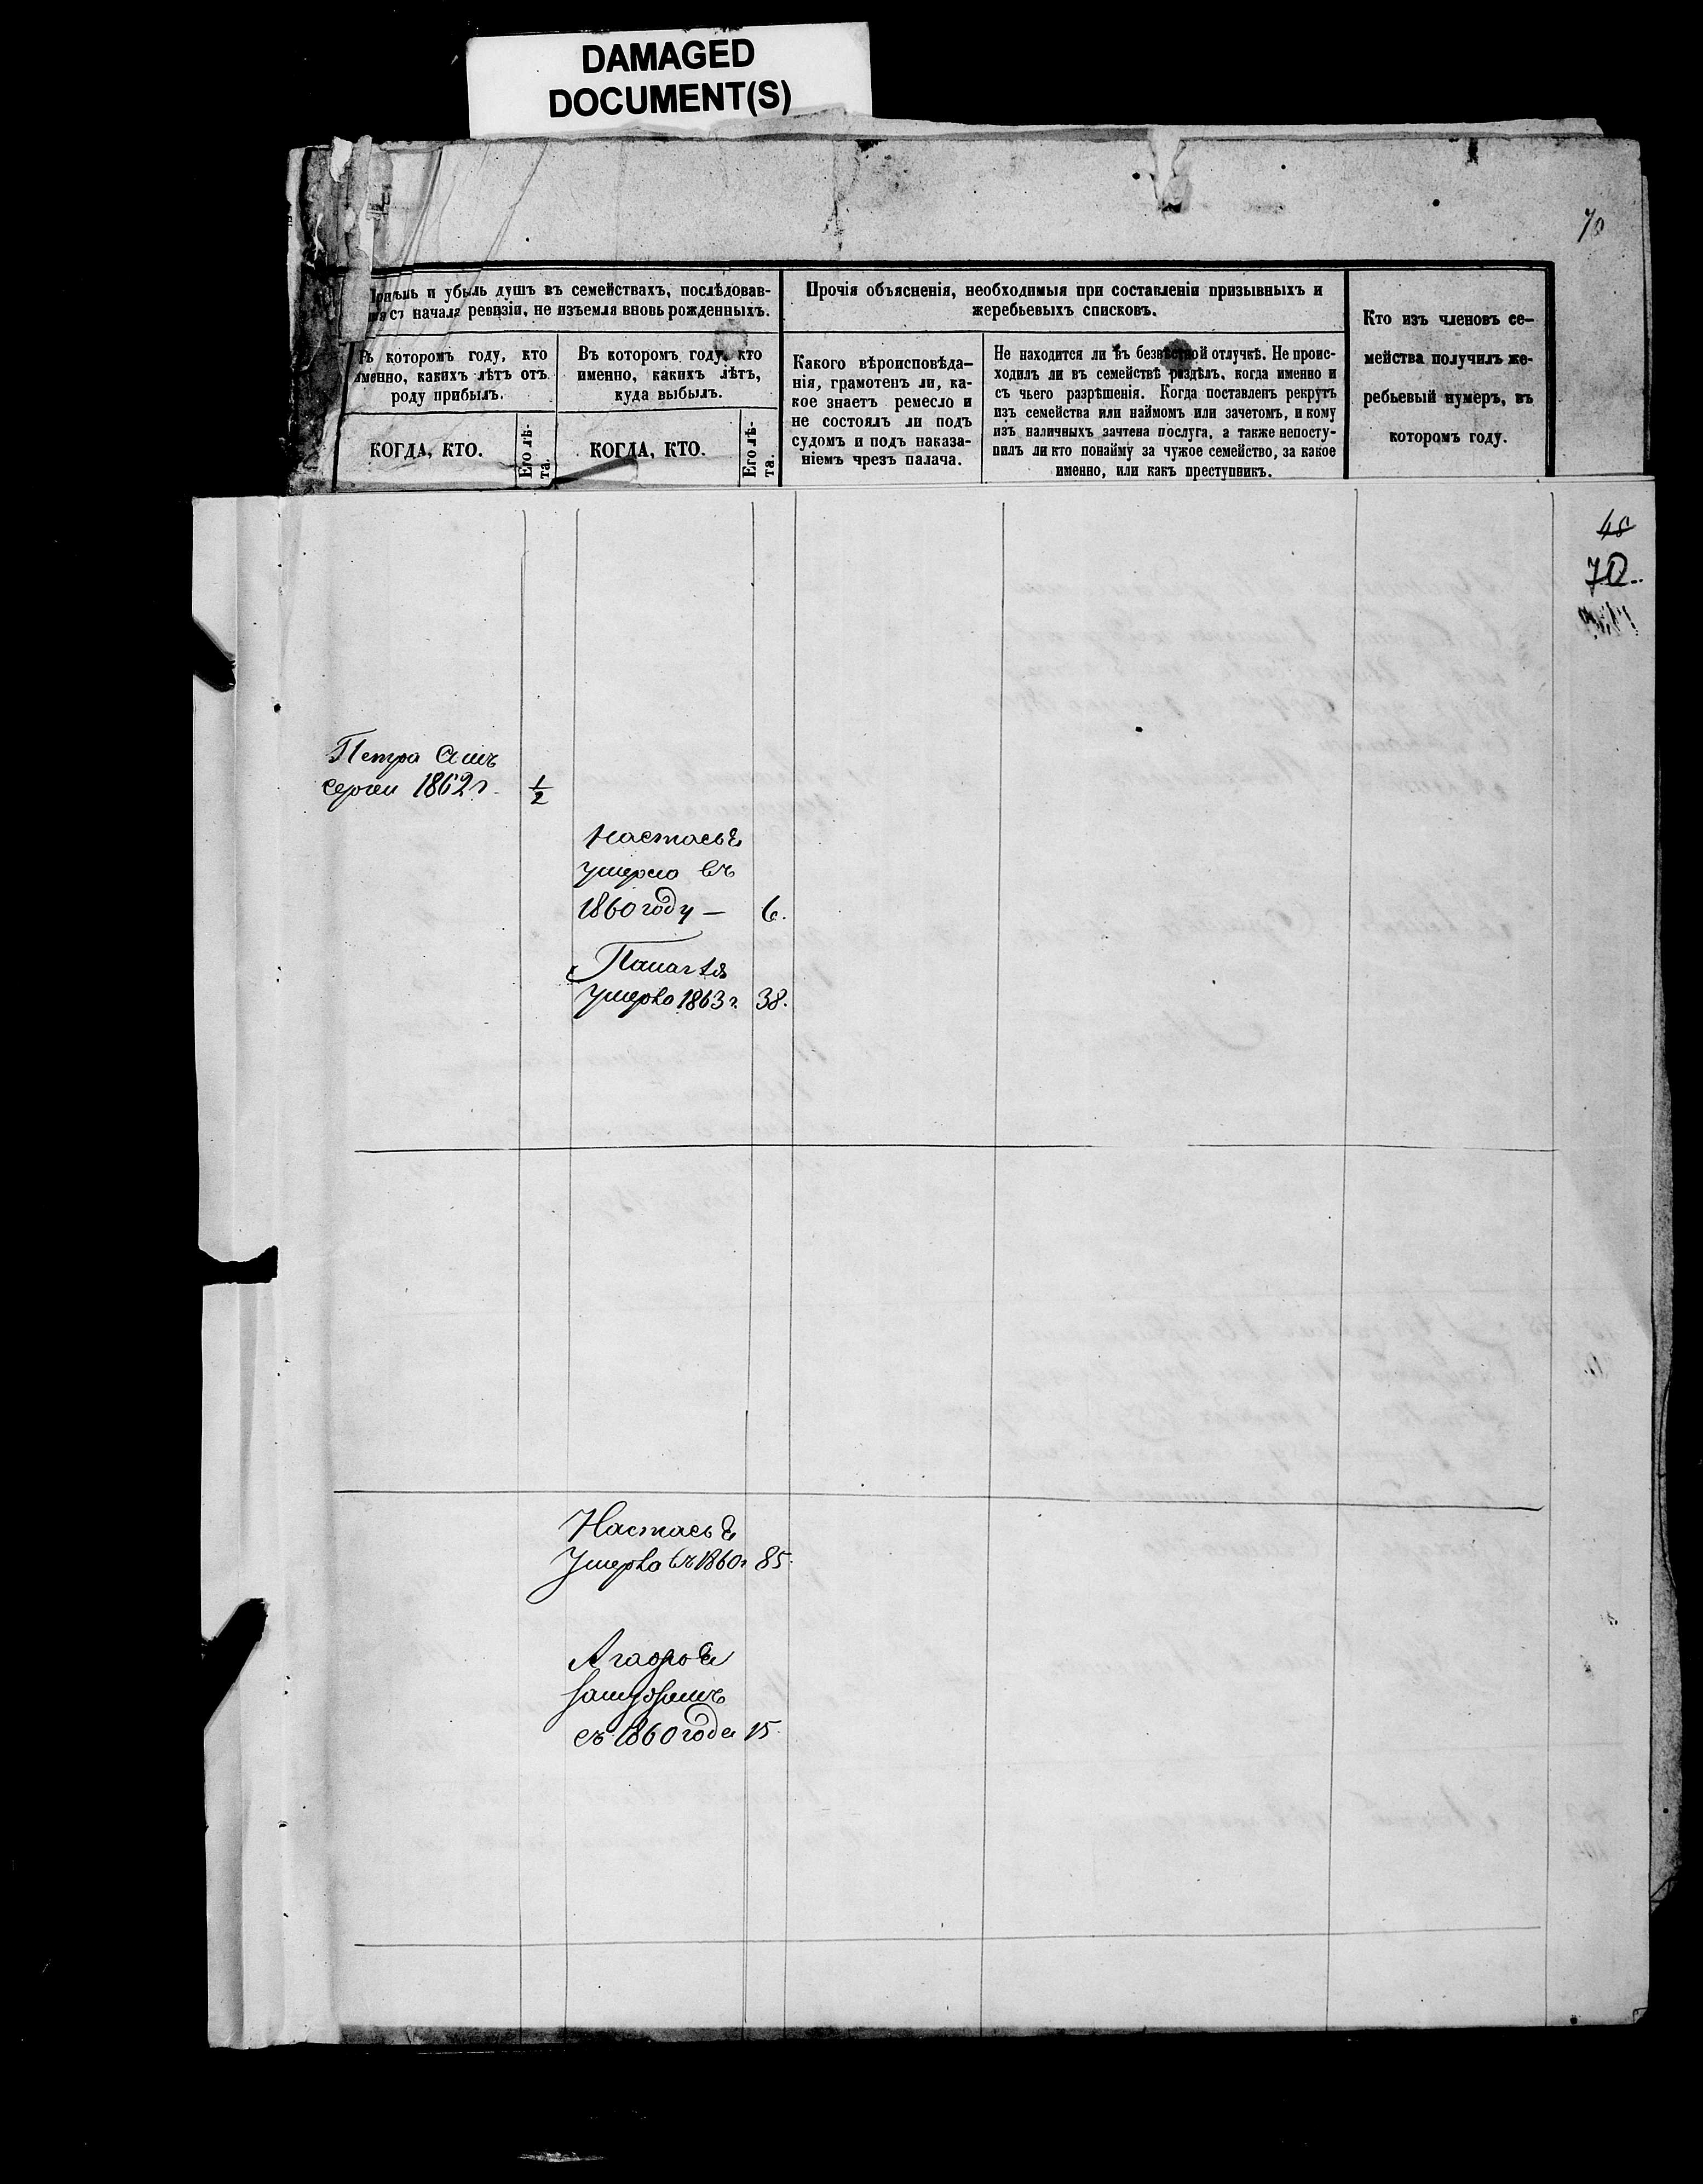 DAMAGED
DOCUMENT(S)
70
и убыль душъ въ семействахъ, послѣдовав-
съ начала ревизіи, не изъемля вновь рожденныхъ.
Въ которомъ году, кто
именно, какихъ лѣтъ отъ
роду прибылъ.
Въ которомъ году, кто
именно, какихъ лѣтъ,
куда выбылъ.
КОГДА, КТО.
Его лѣ-
та.
КОГДА, КТО.
Его лѣ-
та.
Прочія объясненія, необходимыя при составленіи призывныхъ и
жеребьевыхъ списковъ.
Какого вѣроисповѣда-
нія, грамотенъ ли, ка-
кое знаетъ ремесло и
не состоялъ ли подъ
судомъ и подъ наказа-
ніемъ чрезъ палача.
Не находится ли въ безвѣстной отлучкѣ. Не проис-
ходилъ ли въ семействѣ раздѣлъ, когда именно и
съ чьего разрѣшенія. Когда поставленъ рекрутъ
изъ семейства или наймомъ или зачетомъ, и кому
изъ наличныхъ зачтена послуга, а также непосту-
пилъ ли кто понайму за чужое семейство, за какое
именно, или какъ преступникъ.
Кто изъ членовъ се-
мейства получилъ же-
ребьевый нумеръ, въ
которомъ году.
48
70
Петра Сынъ
Сергей 1862 г. 1/2
Настасья
умерла въ
1860 году — 6.
Палагея
умерла 1863 г. 38.
Настасья
Умерла въ 1860 г 85.
Агафья
замужемъ
съ 1860 года 15